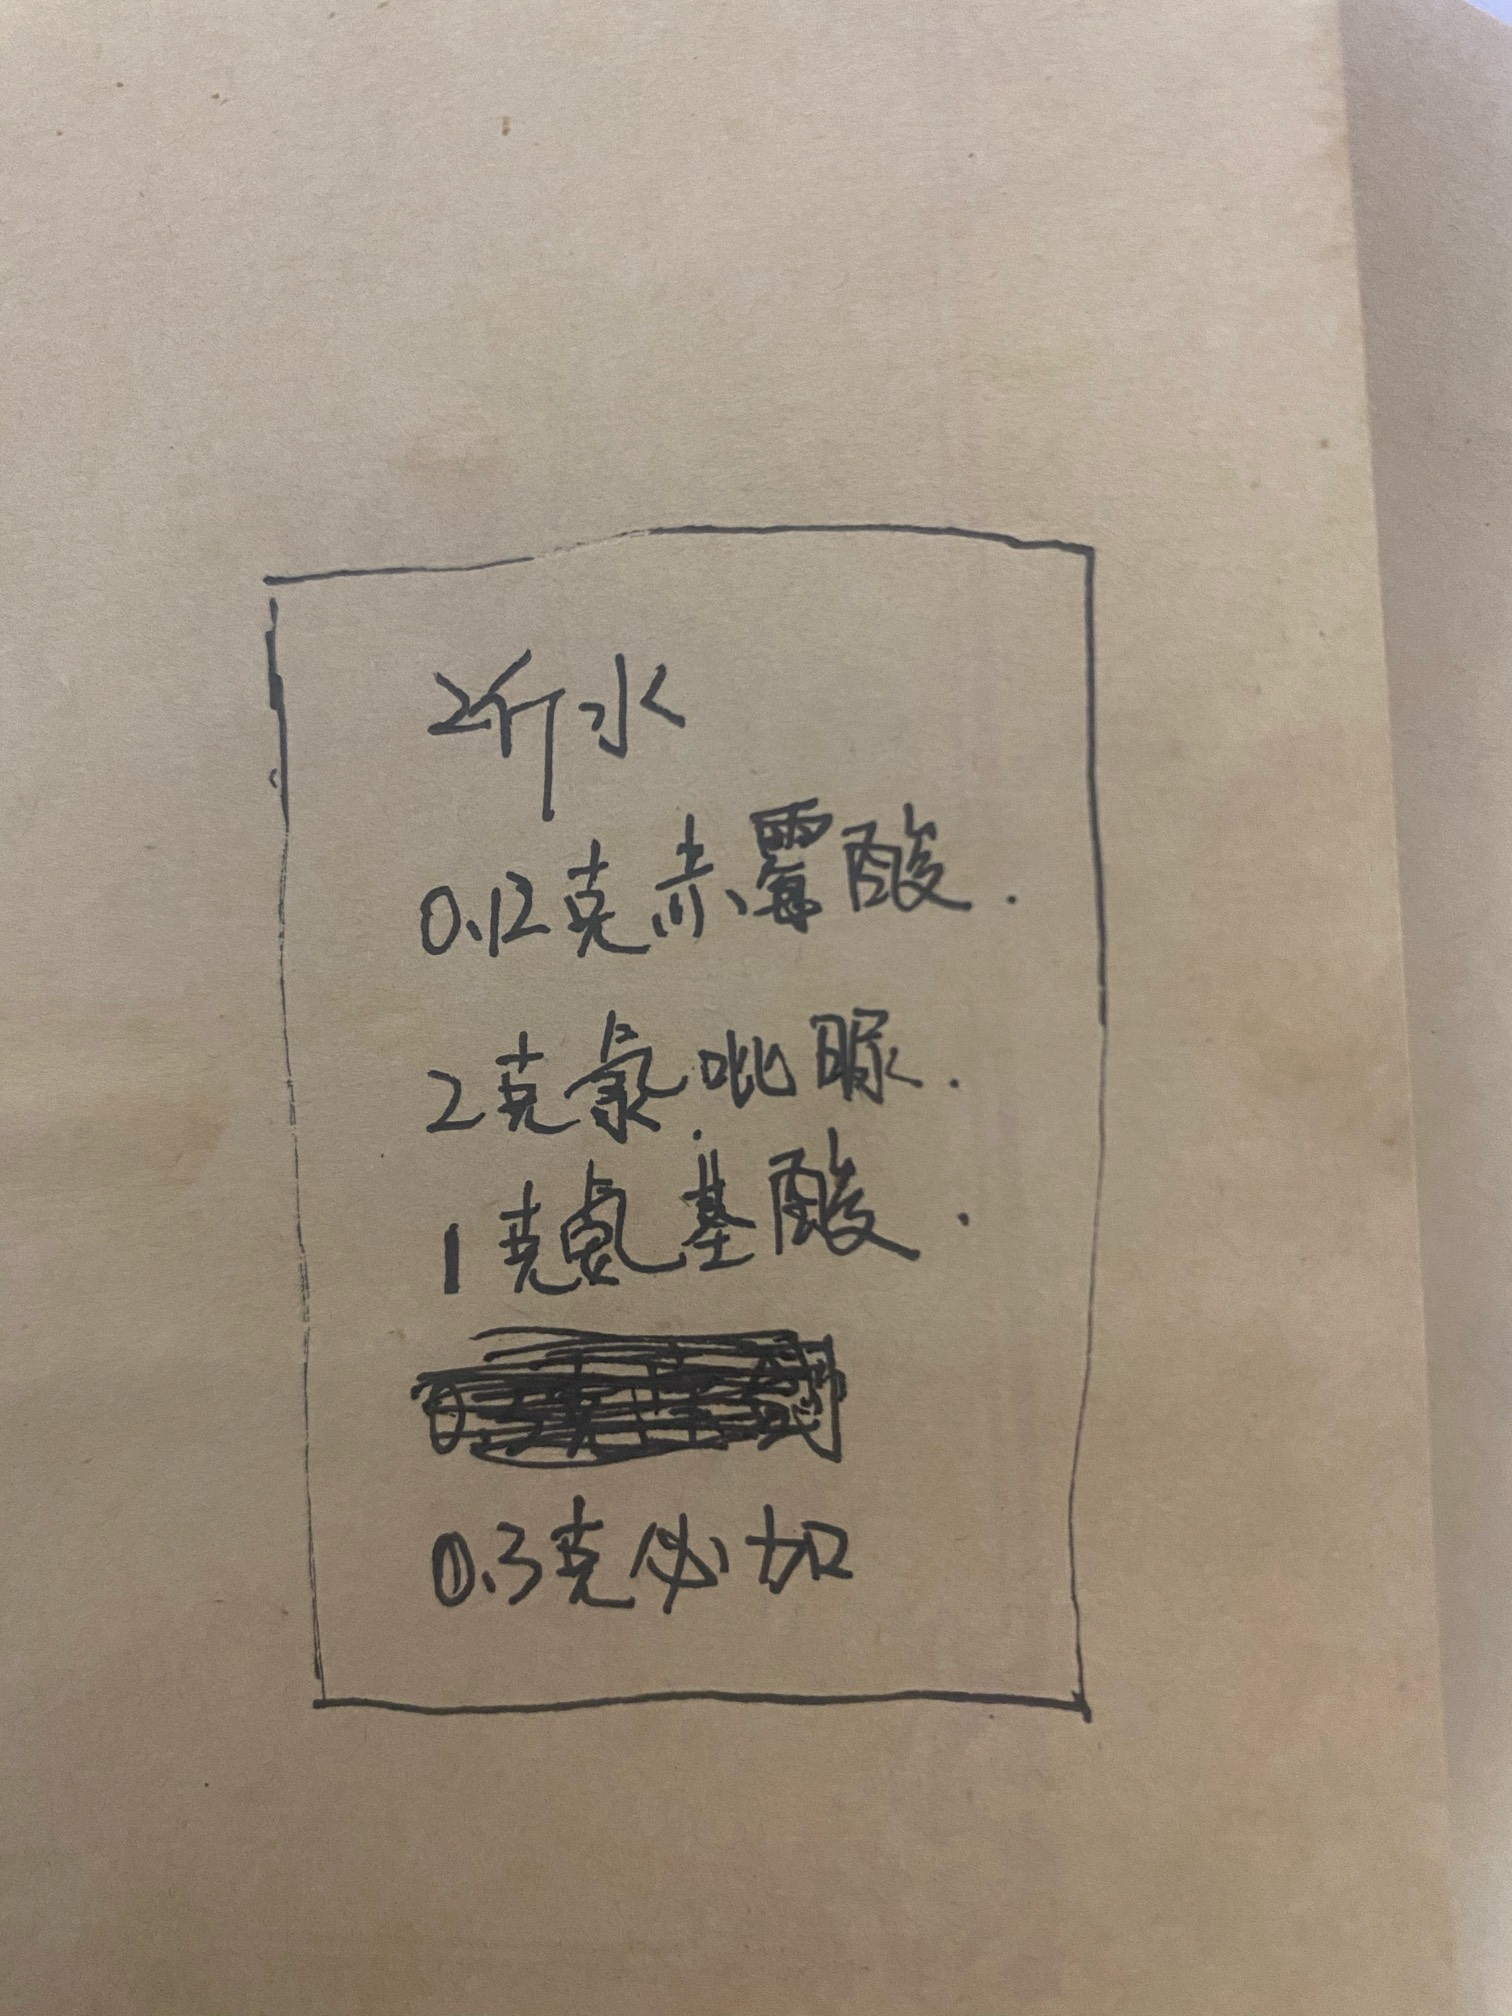 2斤水
0.12克赤霉酸.
2克氯.吡脲.
1克氨基酸.
0.3克必加